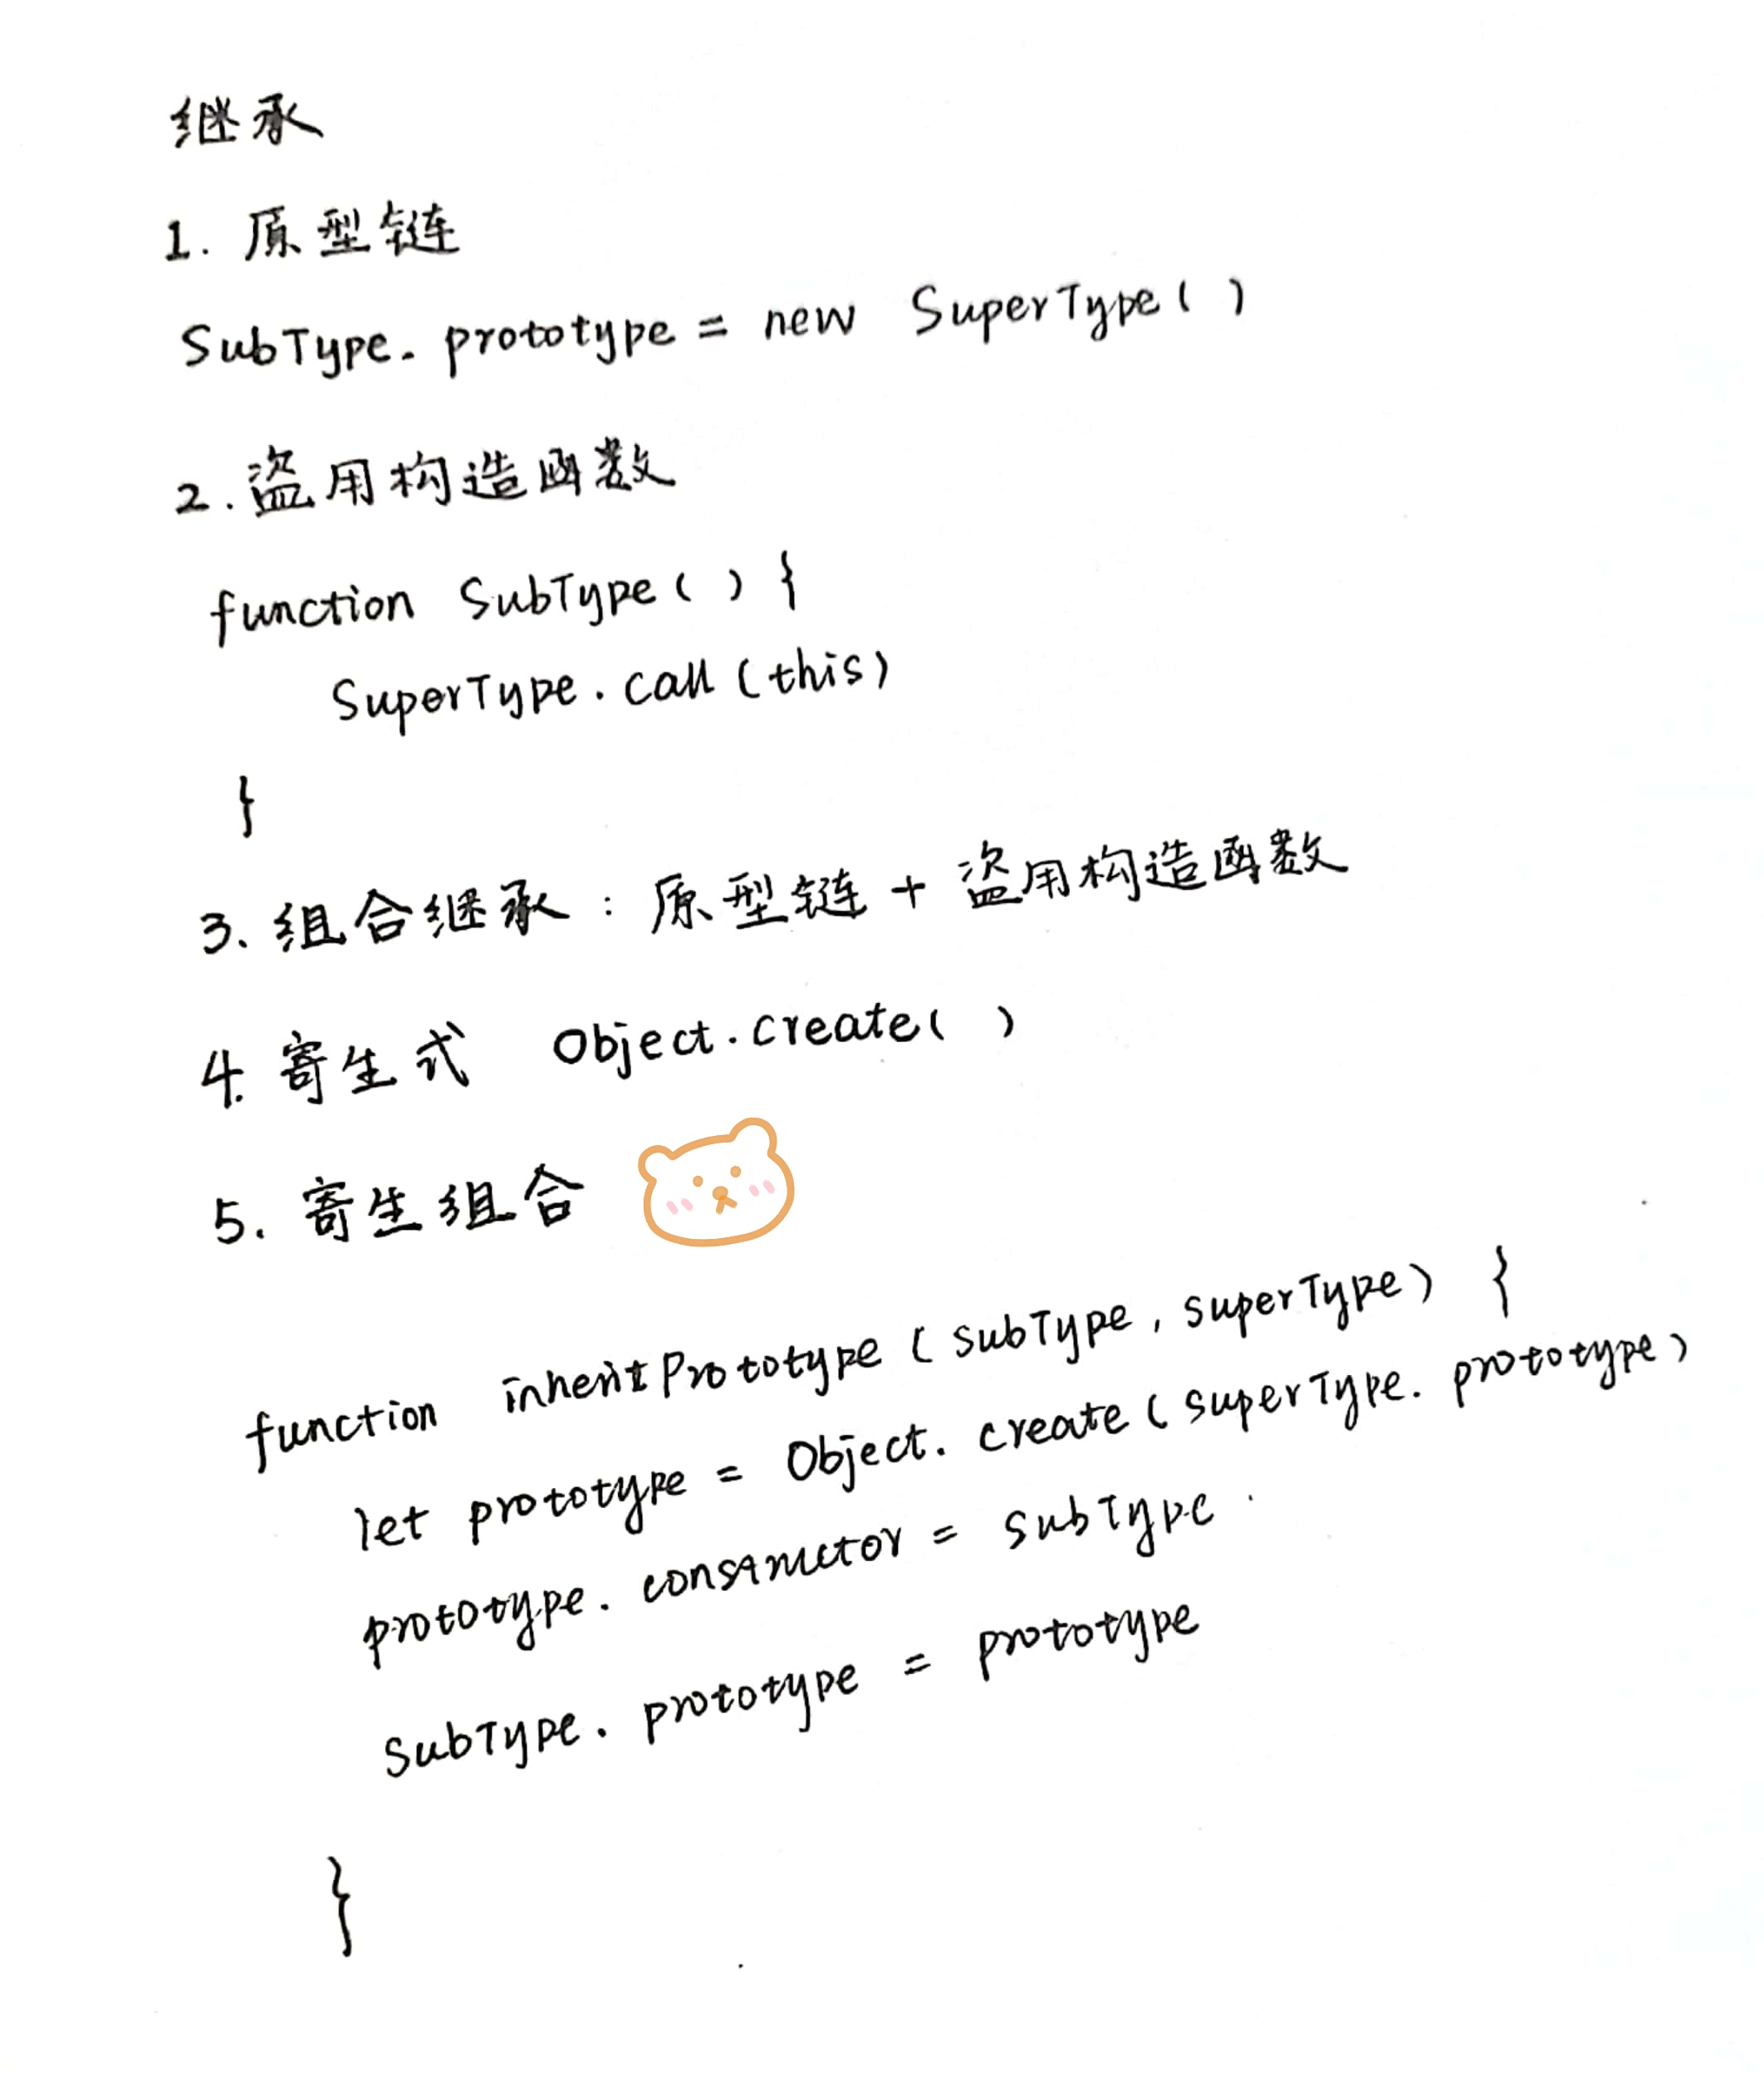 继承
1. 原型链
SubType.prototype = new SuperType( )
2. 盗用构造函数
function SubType( ) {
SuperType.call(this)
}
3. 组合继承：原型链 + 盗用构造函数
4. 寄生式 Object.create( )
5. 寄生组合
function inheritPrototype(subType, superType) {
let prototype = Object.create(superType.prototype)
prototype.constructor = subType
SubType.prototype = prototype
}